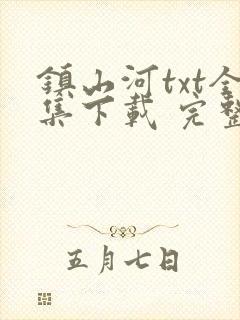 镇山河txt全
集下载 完整
五月七日